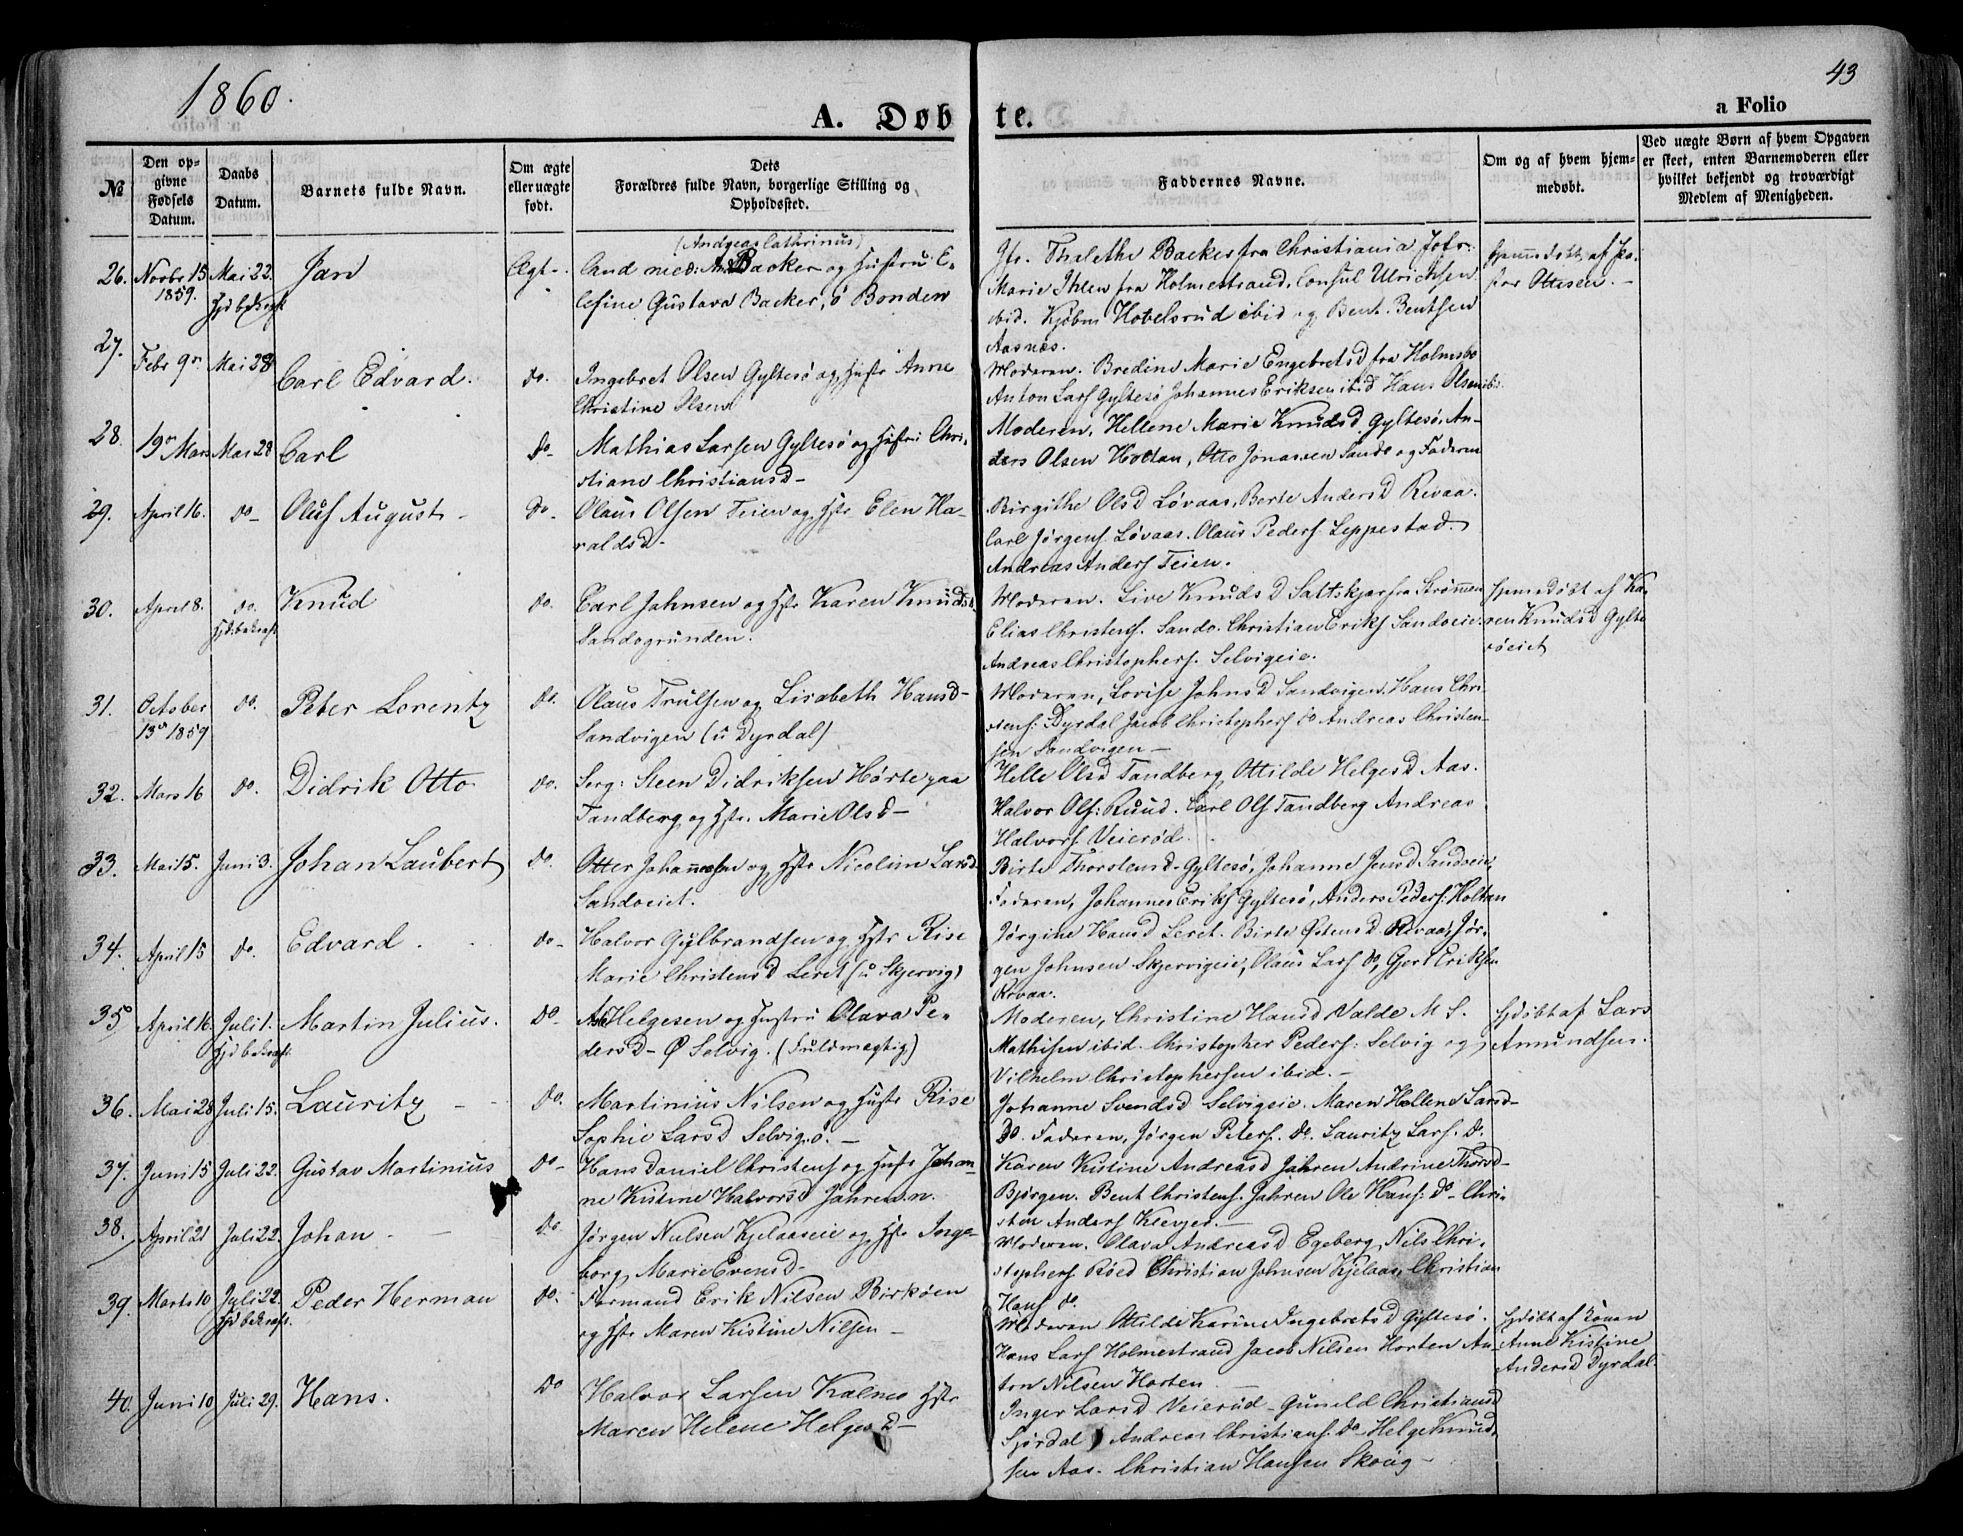 1860.
43
A. Døbte.
a Folio
№
Den opgivne Fødsels Datum.
Daabs Datum.
Barnets fulde Navn.
Om ægte eller uægte født.
Dets Forældres fulde Navn, borgerlige Stilling og Opholdssted.
Faddernes Navne.
Om og af hvem hjemmedøbt.
Ved uægte Børn af hvem Opgaven er skeet, enten Barnemoderen eller hvilket bekjendt og troværdigt Medlem af Menigheden.
26. Novbr 15 1859. Mai 22. Jan Ægt.
(Andreas Cathrinus)
Cand med: Backer og Hustru E-
lesine Gustava Backer, Bonden
Jfr. Thalethe Backer fra Christiania, Jfr.
Marie Ihlen fra Holmestrand, Consul Ulrichsen
ibid. Kjøbm Hovelsrud ibid og Bent Bentsen
Aasnæs.
Hjemmedøbt af Pa-
stor Ottesen.
27. Febr 9 Mai 28 Carl Edvard. do.
Ingebret Olsen Gyltesø og Hustr Anne
Christine Olsen
Moderen. Bredine Marie Engebretsd fra Holmsbo
Anton Lars Gyltesø Johannes Eriksen ibid Hans Olsen ibi.
28. 19 Mars Mai 28 Carl Do
Mathias Larsen Gyltesø og Hustru Chri-
stiane Christiansd
Moderen, Hellene Marie Knudsd Gyltesø, An-
ders Olsen Holtan, Otto Jonassen Sande og Faderen
29. April 16. do Oluf August do
Olaus Olsen Teien og Hstr Elen Ha-
raldsd.
Birgithe Olsd Løvaas, Berte Andersd Revaa.
Carl Jørgens. Løvaas. Olaus Peders. Leppestad.
Andreas Anders Teien.
30. April 8. do. Hjd. bekræft Knud do.
Carl Johnsen og Hstr Karen Knudsd.
Sandsgrunden.
Moderen. Live Knudsd fra Strømmen
Elias Christens. Sande. Christian Eriks Sandeeie.
Andreas Christophers. Selvigeie.
Hjemmedøbt af Ka-
ren Knudsd Gylte
søeiet
31. October 13 1859 do. Peter Lorentz do.
Olaus Trulsen og Lisabeth Hansd
Sandvigen (u Dyrdal)
Moderen, Lovise Johnsd Sandvigen. Hans Chri-
stens: Dyrdal Jacob Christophers do Andreas Christen-
sen Sandvigen
32. Mars 16 do. Didrik Otto do.
Serg: Steen Didriksen Hørte paa
Tandberg og Hstr. Marie Olsd
Helle Olsd Tandberg, Ottilde Helgesd Aas.
Halvor Ols: Ruud. Carl Ols Tandberg Andreas
Halvors Veierød.
33. Mai 15. Juni 3. Johan Laubert Do.
Otter Johannesen og Hstr Nicoline Larsd
Sandeeiet.
Birte Thorstensd Gyltesø, Johanne Jensd Sandeeie,
Faderen, Johannes Eriks Gyltesø, Anders Peders: Holtan
34. April 15 do. Edvard. do
Halvor Gulbrandsen og Hstr Rise
Marie Christensd Leret (u Skjervig)
Jørgine Hansd Leret. Birte Østensd Revaa, Jør-
gen Johnsen Skjervigeie, Olaus Lars do, Gjert Eriksen
Revaa.
35 April 16. Juli 1. Hjd bekræft. Martin Julius. Do
Helgesen og Hustru Olava Pe-
dersd Ø Selvig. (Fuldmægtig)
Moderen, Christine Hansd Valde M S.
Mathisen ibid. Christopher Peders: Selvig og
Vilhelm Christophersen ibid.
Hjdøbt af Lars
Amundsen.
36. Mai 28 Juli 15. Lauritz Do.
Martinius Nilsen og Hustr Rise
Sophie Larsd Selvig.
Johanne Svendsd Selvigeie. Maren Hellene Larsd
Do. Faderen, Jørgen Peters. do. Lauritz Lars. d.
37. Juni 15 Juli 22. Gustav Martinius Do
Hans Daniel Christens og Hustr Johan-
ne Kistine Halvorsd Jahren.
Karen Kistine Andreasd Jahren Andrine Thorsd
Bjørgen. Bent Christens. Jahren Ole Hans: do Chri-
sten Anders Klevjer.
38. April 21 Juli 22. Johan Do
Jørgen Nielsen Kjelaaseie og Hstr Inge-
borg Marie Evensd
Moderen. Olava Andreasd Egeberg, Nils Chri-
stophers Røed Christian Johnsen Kjelaas, Christian
Hans do.
39. Marts 10 Juli 22. Hjd bekræft. Peder Herman do.
Formand Erik Nilsen Birkøen
og Hstr Maren Kistine Nilsen
Moderen Ottilde Karine Ingebretsd Gyltesø.
Hans Lars Holmestrand Jacob Nilsen Horten An-
ton Nilsen Horten
Hjdøbt af Konen
Anne Kistine
Andersd Dyrdal
40. Juni 10 Juli 29. Hans. Do
Halvor Larsen Kalnes Hstr
Maren Helene Helgesd
Inger Larsd Veierud Gunild Christiansd
Fjørdal Andreas Christians. do Helge Knud-
sen Aas. Christian Hansen Skoug